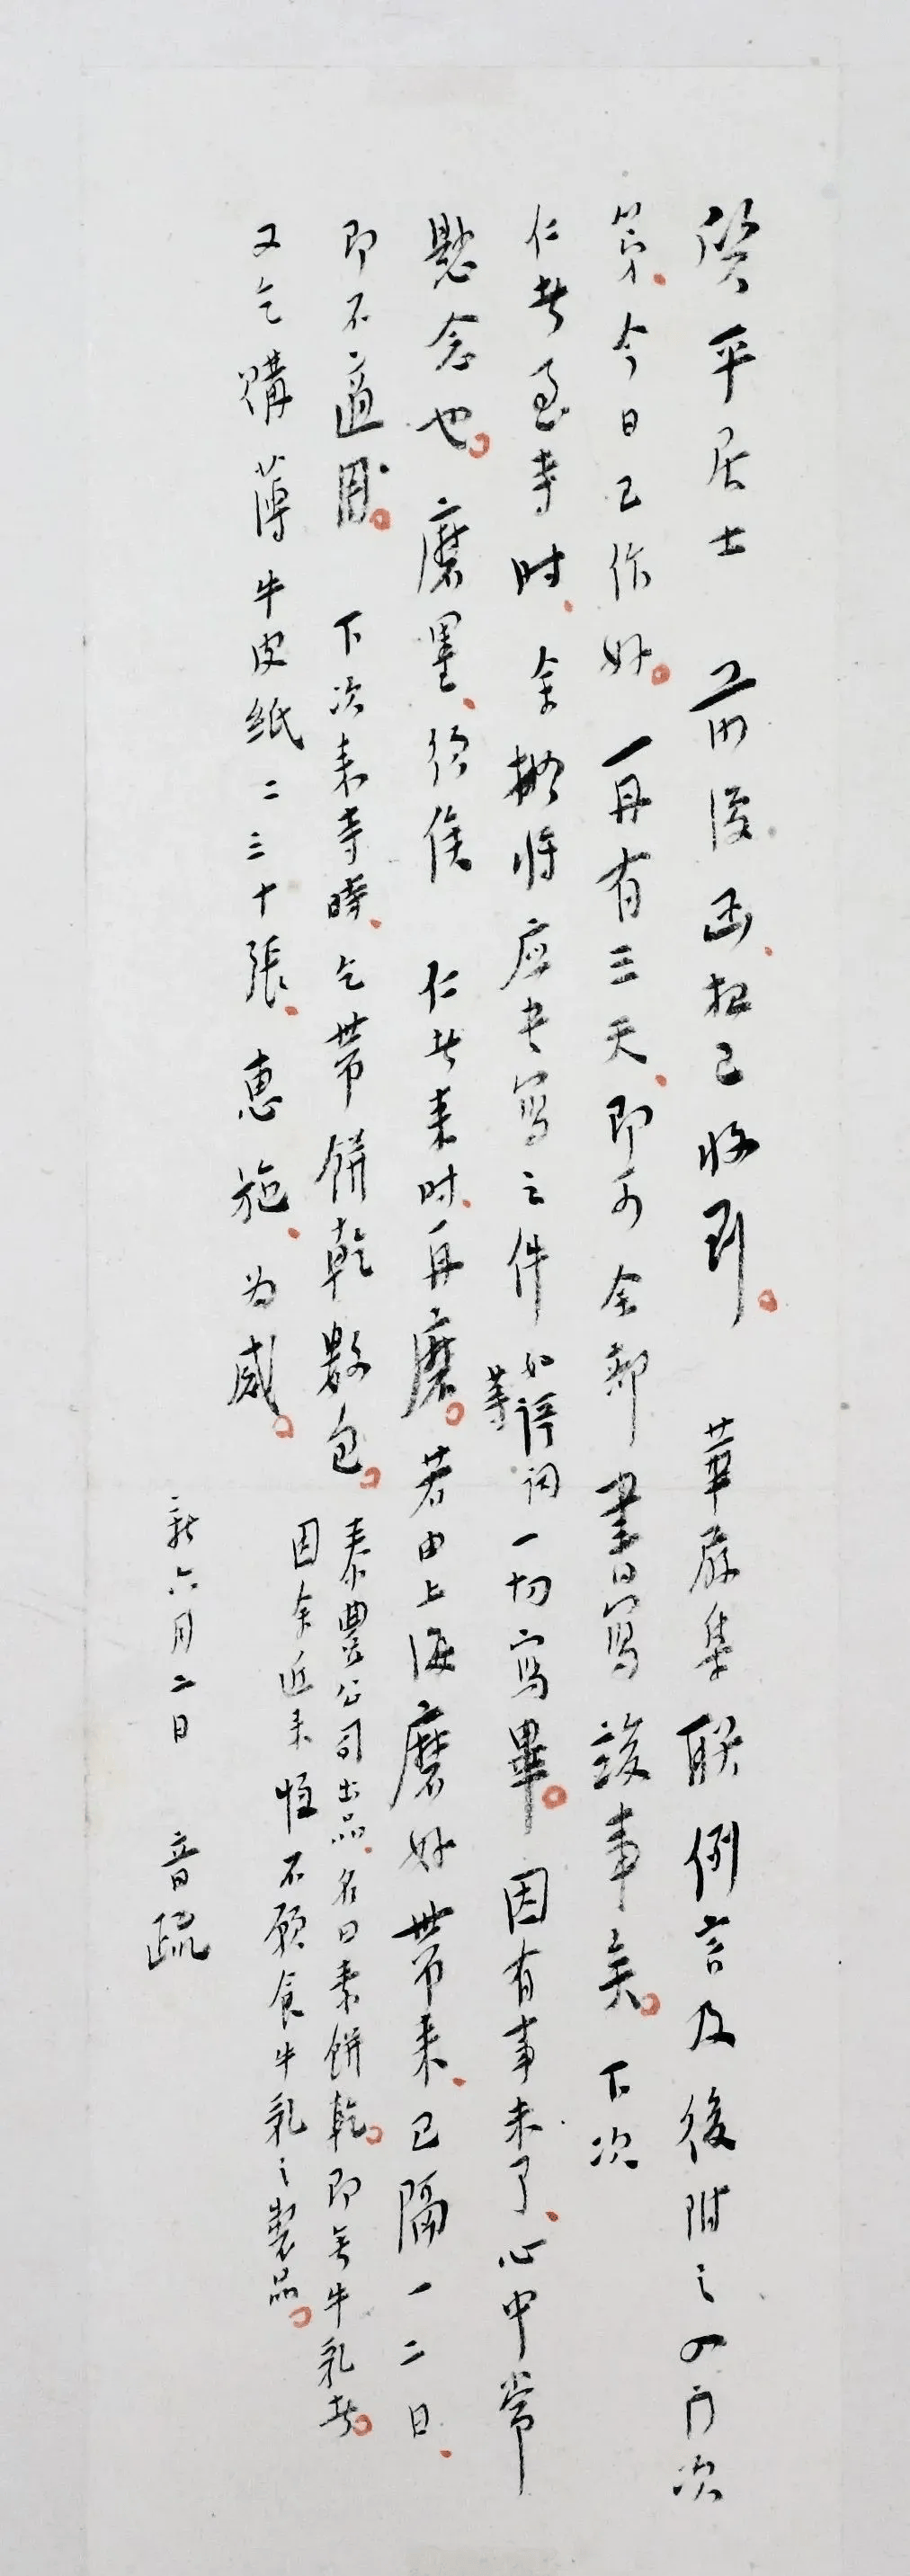 質平居士 前後函、扣已收到。 華嚴集聯例言及後附之四門次
第、今日已作好。一再有三天、即可全部書寫竣事矣。下次
仁者至寺時、余擬將应書寫之件如語詞等一切寫畢。因有事未了、心中常
懸念也。 磨墨、須俟 仁者来时、再磨。若由上海磨好带来、已隔一二日、
即不適用。 下次来寺時、乞带餅乾數包。
泰豐公司出品、名曰素餅乾。即無牛乳者。
因余近来恒不願食牛乳之製品。
又乞購薄牛皮纸二三十張、惠施、为感。
新六月二日 音疏